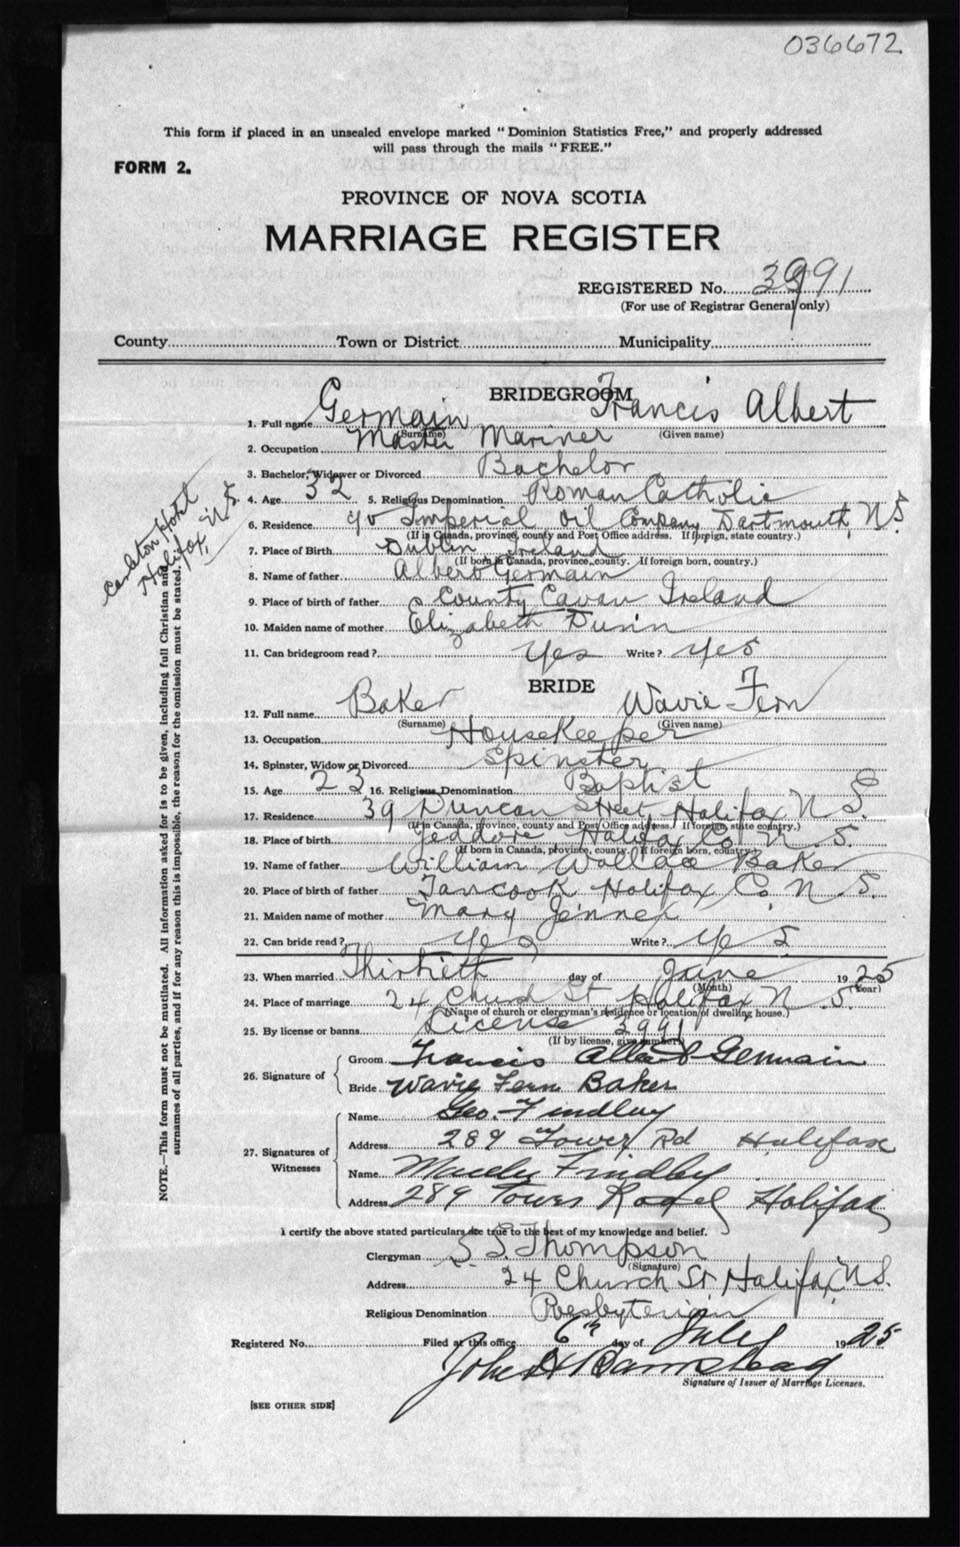 036672
This form if placed in an unsealed envelope marked "Dominion Statistics Free," and properly addressed
will pass through the mails "FREE."
FORM 2.
PROVINCE OF NOVA SCOTIA
MARRIAGE REGISTER
REGISTERED No. 3991
(For use of Registrar General only)
County Town or District Municipality
BRIDEGROOM
1. Full name Germain Francis Albert
(Surname) (Given name)
2. Occupation Master Mariner
3. Bachelor, Widower or Divorced Bachelor
4. Age 32 5. Religious Denomination Roman Catholic
6. Residence c/o Imperial Oil Company Dartmouth, N.S.
(If in Canada, province, county and Post Office address. If foreign, state country.)
Carlton Hotel
Halifax, N.S.
7. Place of Birth Dublin Ireland
(If born in Canada, province, county. If foreign born, country.)
8. Name of father Albert Germain
9. Place of birth of father County Cavan Ireland
10. Maiden name of mother Elizabeth Dunn
11. Can bridegroom read? Yes Write? yes
BRIDE
12. Full name Baker Wavie Fern
(Surname) (Given name)
13. Occupation HouseKeeper
14. Spinster, Widow or Divorced Spinster
15. Age 23 16. Religious Denomination Baptist
17. Residence 39 Duncan Street Halifax N S
(If in Canada, province, county and Post Office address. If foreign, state country.)
18. Place of birth Jeddore Halifax Co. N. S.
(If born in Canada, province, county. If foreign born, country.)
19. Name of father William Wallace Baker
20. Place of birth of father Tancook Halifax Co. N S.
21. Maiden name of mother Mary Jenner
22. Can bride read? Yes Write? Yes
23. When married Thirtieth day of June 1925
(Month) (Year)
24. Place of marriage 24 Church St Halifax N S.
(Name of church or clergyman's residence or location of dwelling house.)
25. By license or banns License 3991
(If by license, give number)
26. Signature of
Groom Francis Albert Germain
Bride Wavie Fern Baker
27. Signatures of Witnesses
Name Geo. Findlay
Address 289 Tower Rd Halifax
Name Findlay
Address 289 Tower Road Halifax
I certify the above stated particulars are true to the best of my knowledge and belief.
Clergyman S. S. Thompson
(Signature)
Address 24 Church St Halifax, N S.
Religious Denomination Presbyterian
Registered No. Filed at this office 6th day of July 1925
John H Barnstead
Signature of Issuer of Marriage Licenses.
[SEE OTHER SIDE]
NOTE.—This form must not be mutilated. All information asked for is to be given, including full Christian and
surnames of all parties, and if for any reason this is impossible, the reason for the omission must be stated.